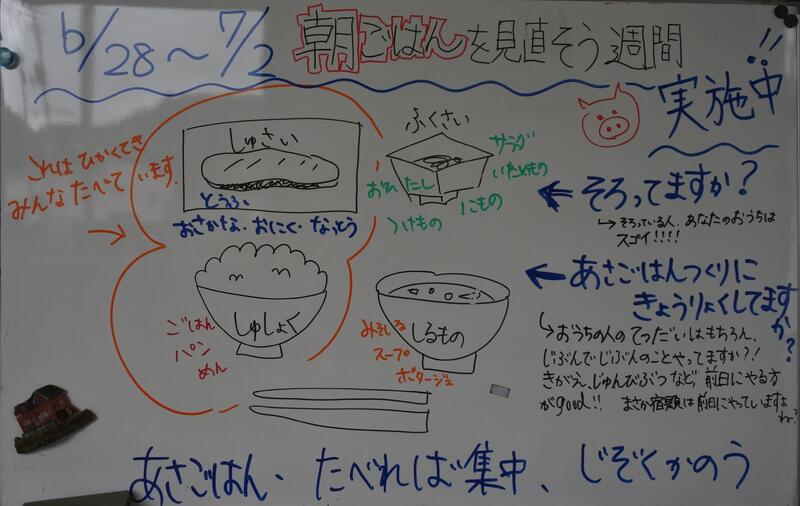 6/28〜7/2 朝ごはんを見直そう週間
実施中!!
これはひかくてき
みんなたべています。
しゅさい
とうふ
おさかな・おにく・なっとう
ふくさい
サラダ
いためもの
おひたし
にもの
つけもの
←そろってますか?
↳そろっている人、あなたのおうちは
スゴイ!!!!
しゅしょく
ごはん
パン
めん
しるもの
みそしる
スープ
ポタージュ
←あさごはんつくりに
きょうりょくしてますか?
↳おうちの人のてつだいはもちろん、
じぶんでじぶんのことやってますか?!
きがえ、じゅんびぶつなど前日にやる方
がgood!! まさか宿題は前日にやっていますよね?
あさごはん、たべれば集中、じぞくかのう